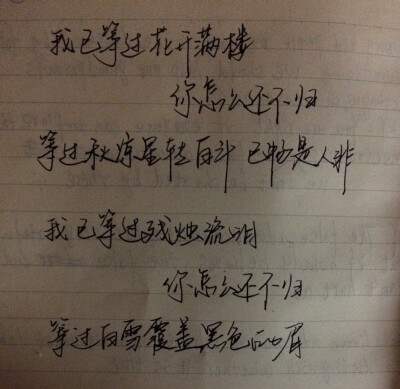 我已等过花开满楼
你怎么还不归
等过秋凉星转百斗 已物是人非
我已等过残烛流泪
你怎么还不归
等过白雪覆盖黑色的眉